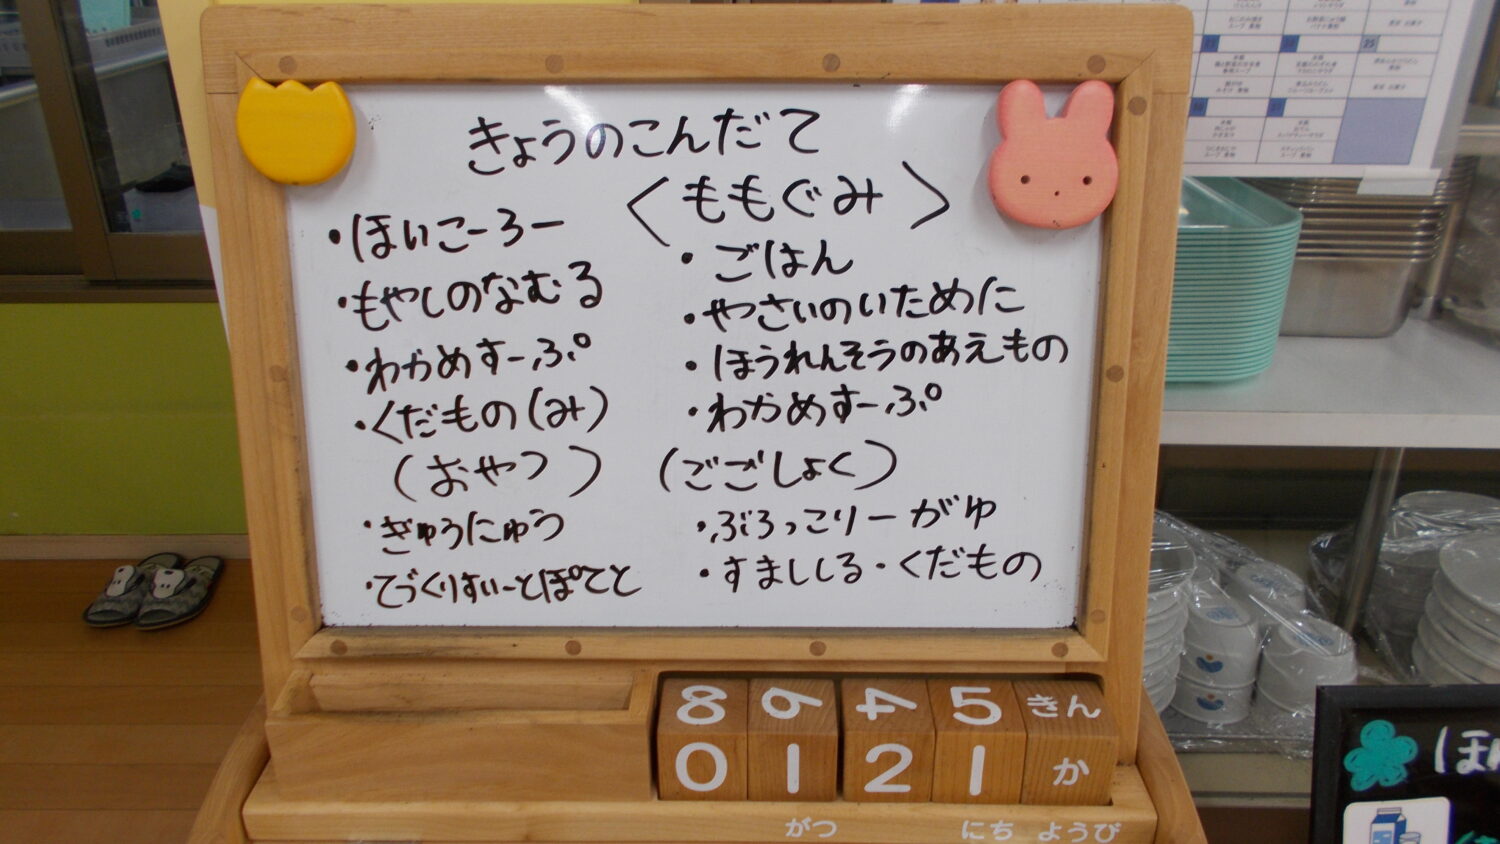 きょうのこんだて
・ほいこーろー
・もやしのなむる
・わかめすーぷ
・くだもの(み)
(おやつ)
・ぎゅうにゅう
・てづくりすいーとぽてと
<ももぐみ>
・ごはん
・やさいのいために
・ほうれんそうのあえもの
・わかめすーぷ
(ごごしょく)
・ぶろっこりーがゆ
・すまししる・くだもの
8 6 4 5 きん
0 1 2 1 か
がつ にち ようび